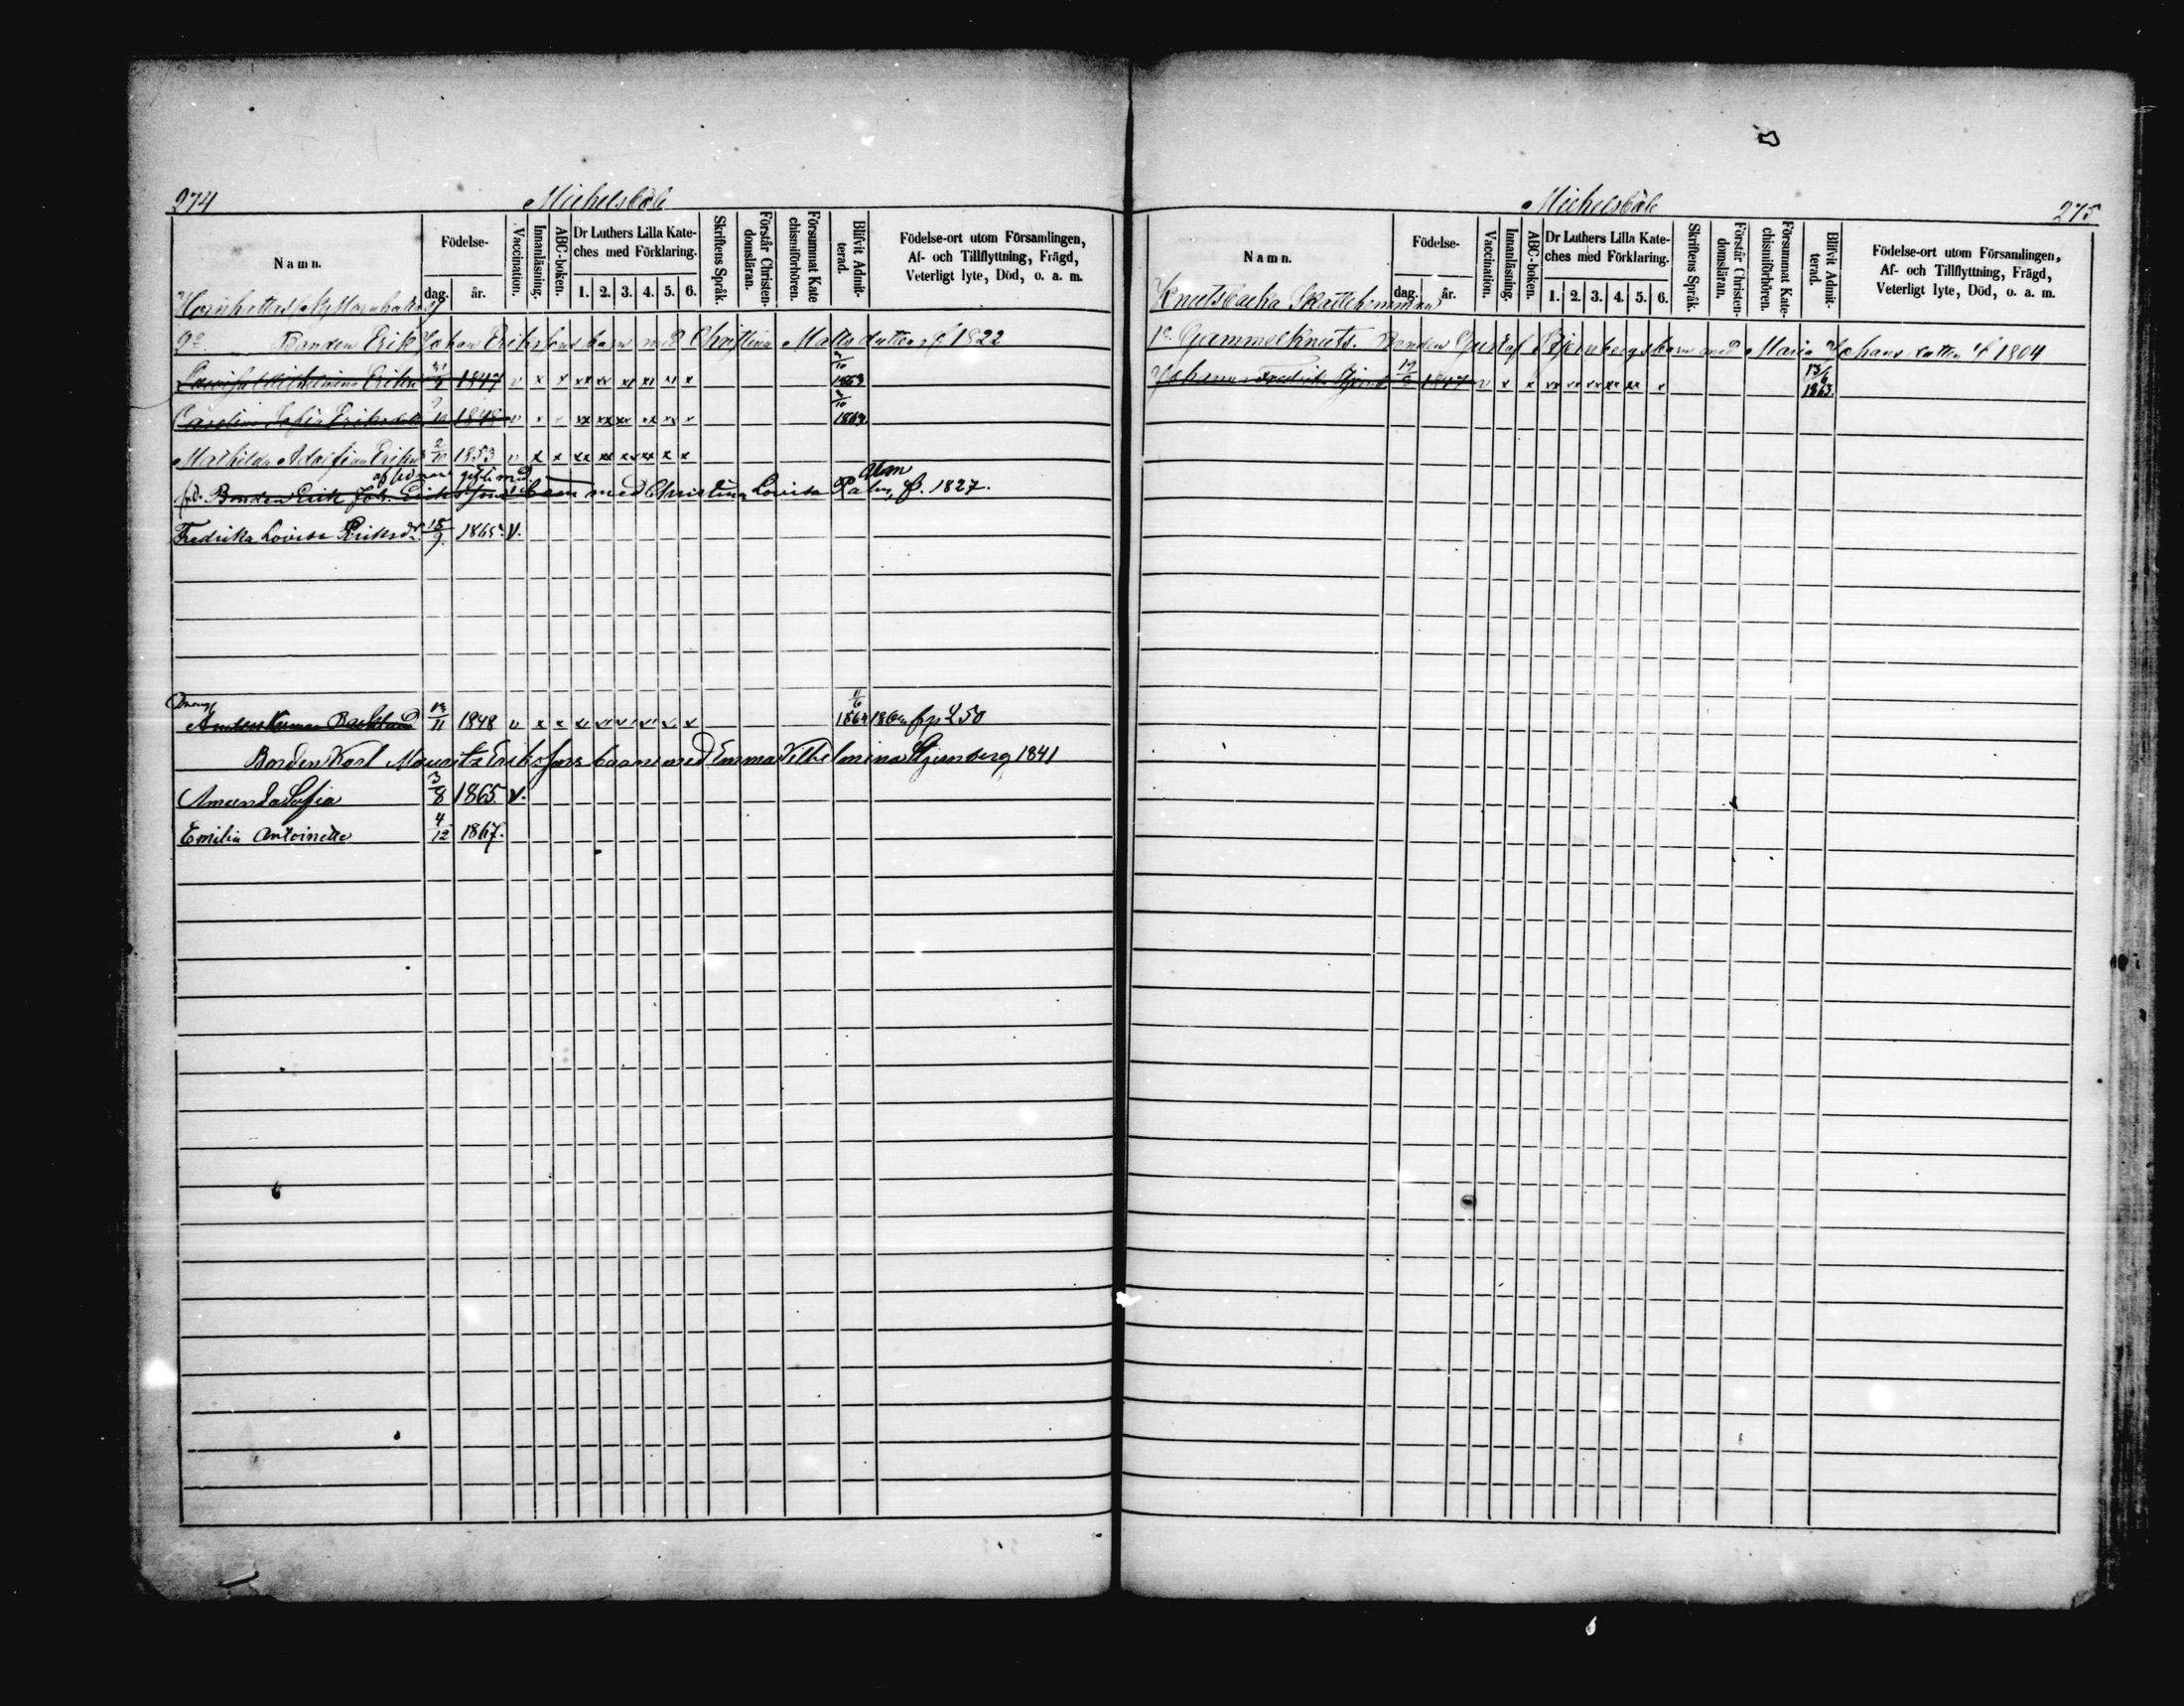 274 Michelsböle
Namn. Födelse- dag. år. Vaccination. Innanläsning. ABC-boken. Dr Luthers Lilla Kateches med Förklaring. 1. 2. 3. 4. 5. 6. Skriftens Språk. Förstår Christendomsläran. Försummat Katechismiförhören. Blifvit Admitterad. Födelse-ort utom Församlingen, Af- och Tillflyttning, Frägd, Veterligt lyte, Död, o. a. m.
Bonden Erik Johan Erikssons barn med Christina Mattsdotter f 1822
Lovisa Wilhelmina Eriksd 1847 v x x xx xx xx xx xx x 1863
Carolina Sofia Eriksdotter 1848 v x x xx xx xx xx xx x 1863
Mathilda Adolfina Eriksd 2/10 1853 v x x xx xx xx xx x x
Bonden Erik Joh. Erikssons barn med Christina Lovisa Palm, f. 1827.
Fredrika Lovisa Eriksdr. 18/9 1865. v.
Dreng
Anders Herman Backlund 1848 v x x x x x x x x 11/6 1864
Bonden Karl Mauritz Erikssons barn med Emma Vilhelmina Stjernberg 1841
Amanda Sofia 3/8 1865. v.
Emilia Antoinette 4/12 1867.
Michelsböle 275
Namn. Födelse- dag. år. Vaccination. Innanläsning. ABC-boken. Dr Luthers Lilla Kateches med Förklaring. 1. 2. 3. 4. 5. 6. Skriftens Språk. Förstår Christendomsläran. Försummat Katechismiförhören. Blifvit Admitterad. Födelse-ort utom Församlingen, Af- och Tillflyttning, Frägd, Veterligt lyte, Död, o. a. m.
Knutsbacka Skattehemman
Gammelknuts. Bonden Gustaf Stjernbergs barn med Maria Johansdotter f 1804
Johan Fredrik 1847 v x x xx xx xx xx xx x 13/6 1863.